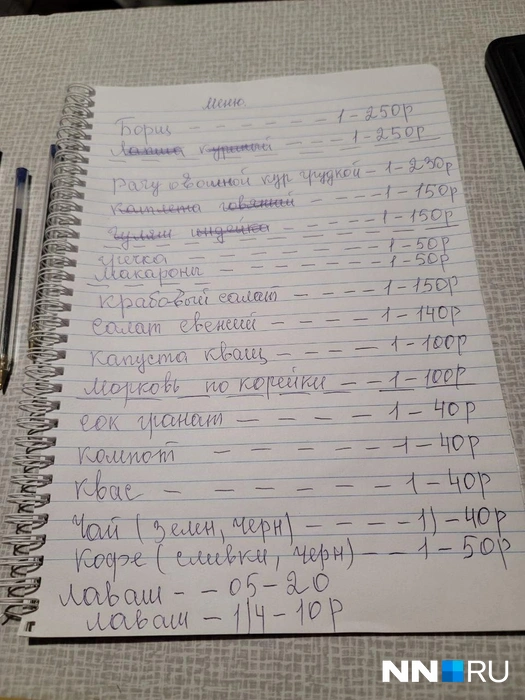 Меню
Борщ - - - - - - 1-250р
Лапша куриный - - - - 1-250р
Рагу овошной кур грудкой - 1-230р
Катлета говяний - - - - 1-150р
Гуляш индейка - - - - 1-150р
гречка - - - - - - - 1-50р
Макароны - - - - - - - 1-50р
Крабовый салат - - - - 1-150р
Салат свенсий - - - - - 1-140р
Капуста кващ - - - - - 1-100р
Морковь по корейки - - 1-100р
Сок гранат - - - - - 1-40р
Компот - - - - - - 1-40р
Квас - - - - - - - 1-40р
Чай (зелен, черн) - - - - 1)-40р
Кофе (сливки, черн) - - - 1-50р
лаваш - - 05-20
лаваш - 1/4-10р
NN RU